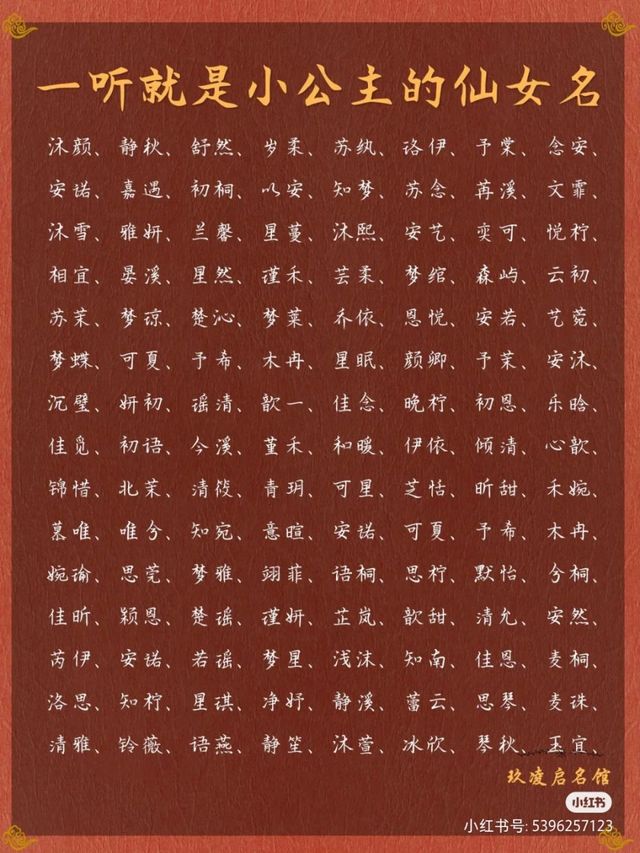 一听就是小公主的仙女名
沐颜、静秋、舒然、岁柔、苏纨、珞伊、予棠、念安、
安诺、嘉遇、初桐、以安、知梦、苏念、苒溪、文霏、
沐雪、雅妍、兰馨、星蔓、沐熙、安艺、奕可、悦柠、
相宜、晏溪、星然、瑾禾、芸柔、梦绾、森屿、云初、
苏茉、梦谅、楚沁、梦葉、乔依、恩悦、安若、艺菀、
梦蝶、可夏、予希、木冉、星眠、颜卿、予茉、安沐、
沉璧、妍初、瑶清、歆一、佳念、晚柠、初恩、乐晗、
佳觅、初语、今溪、堇禾、和暖、伊依、倾清、心歆、
锦惜、北茉、清筱、青玥、可星、芝恬、昕甜、禾婉、
慕唯、唯兮、知宛、意暄、安诺、可夏、予希、木冉、
婉瑜、思莞、梦雅、翊菲、语桐、思柠、默怡、兮桐、
佳昕、颖恩、楚瑶、瑾妍、芷岚、歆甜、清允、安然、
芮伊、安诺、若瑶、梦星、浅沫、知南、佳恩、麦桐、
洛思、知柠、星琪、净妤、静溪、蕾云、思琴、麦珠、
清雅、铃薇、语燕、静笙、沐萱、冰欣、琴秋、玉宜、
玖凌启名馆
小红书
小红书号: 5396257123